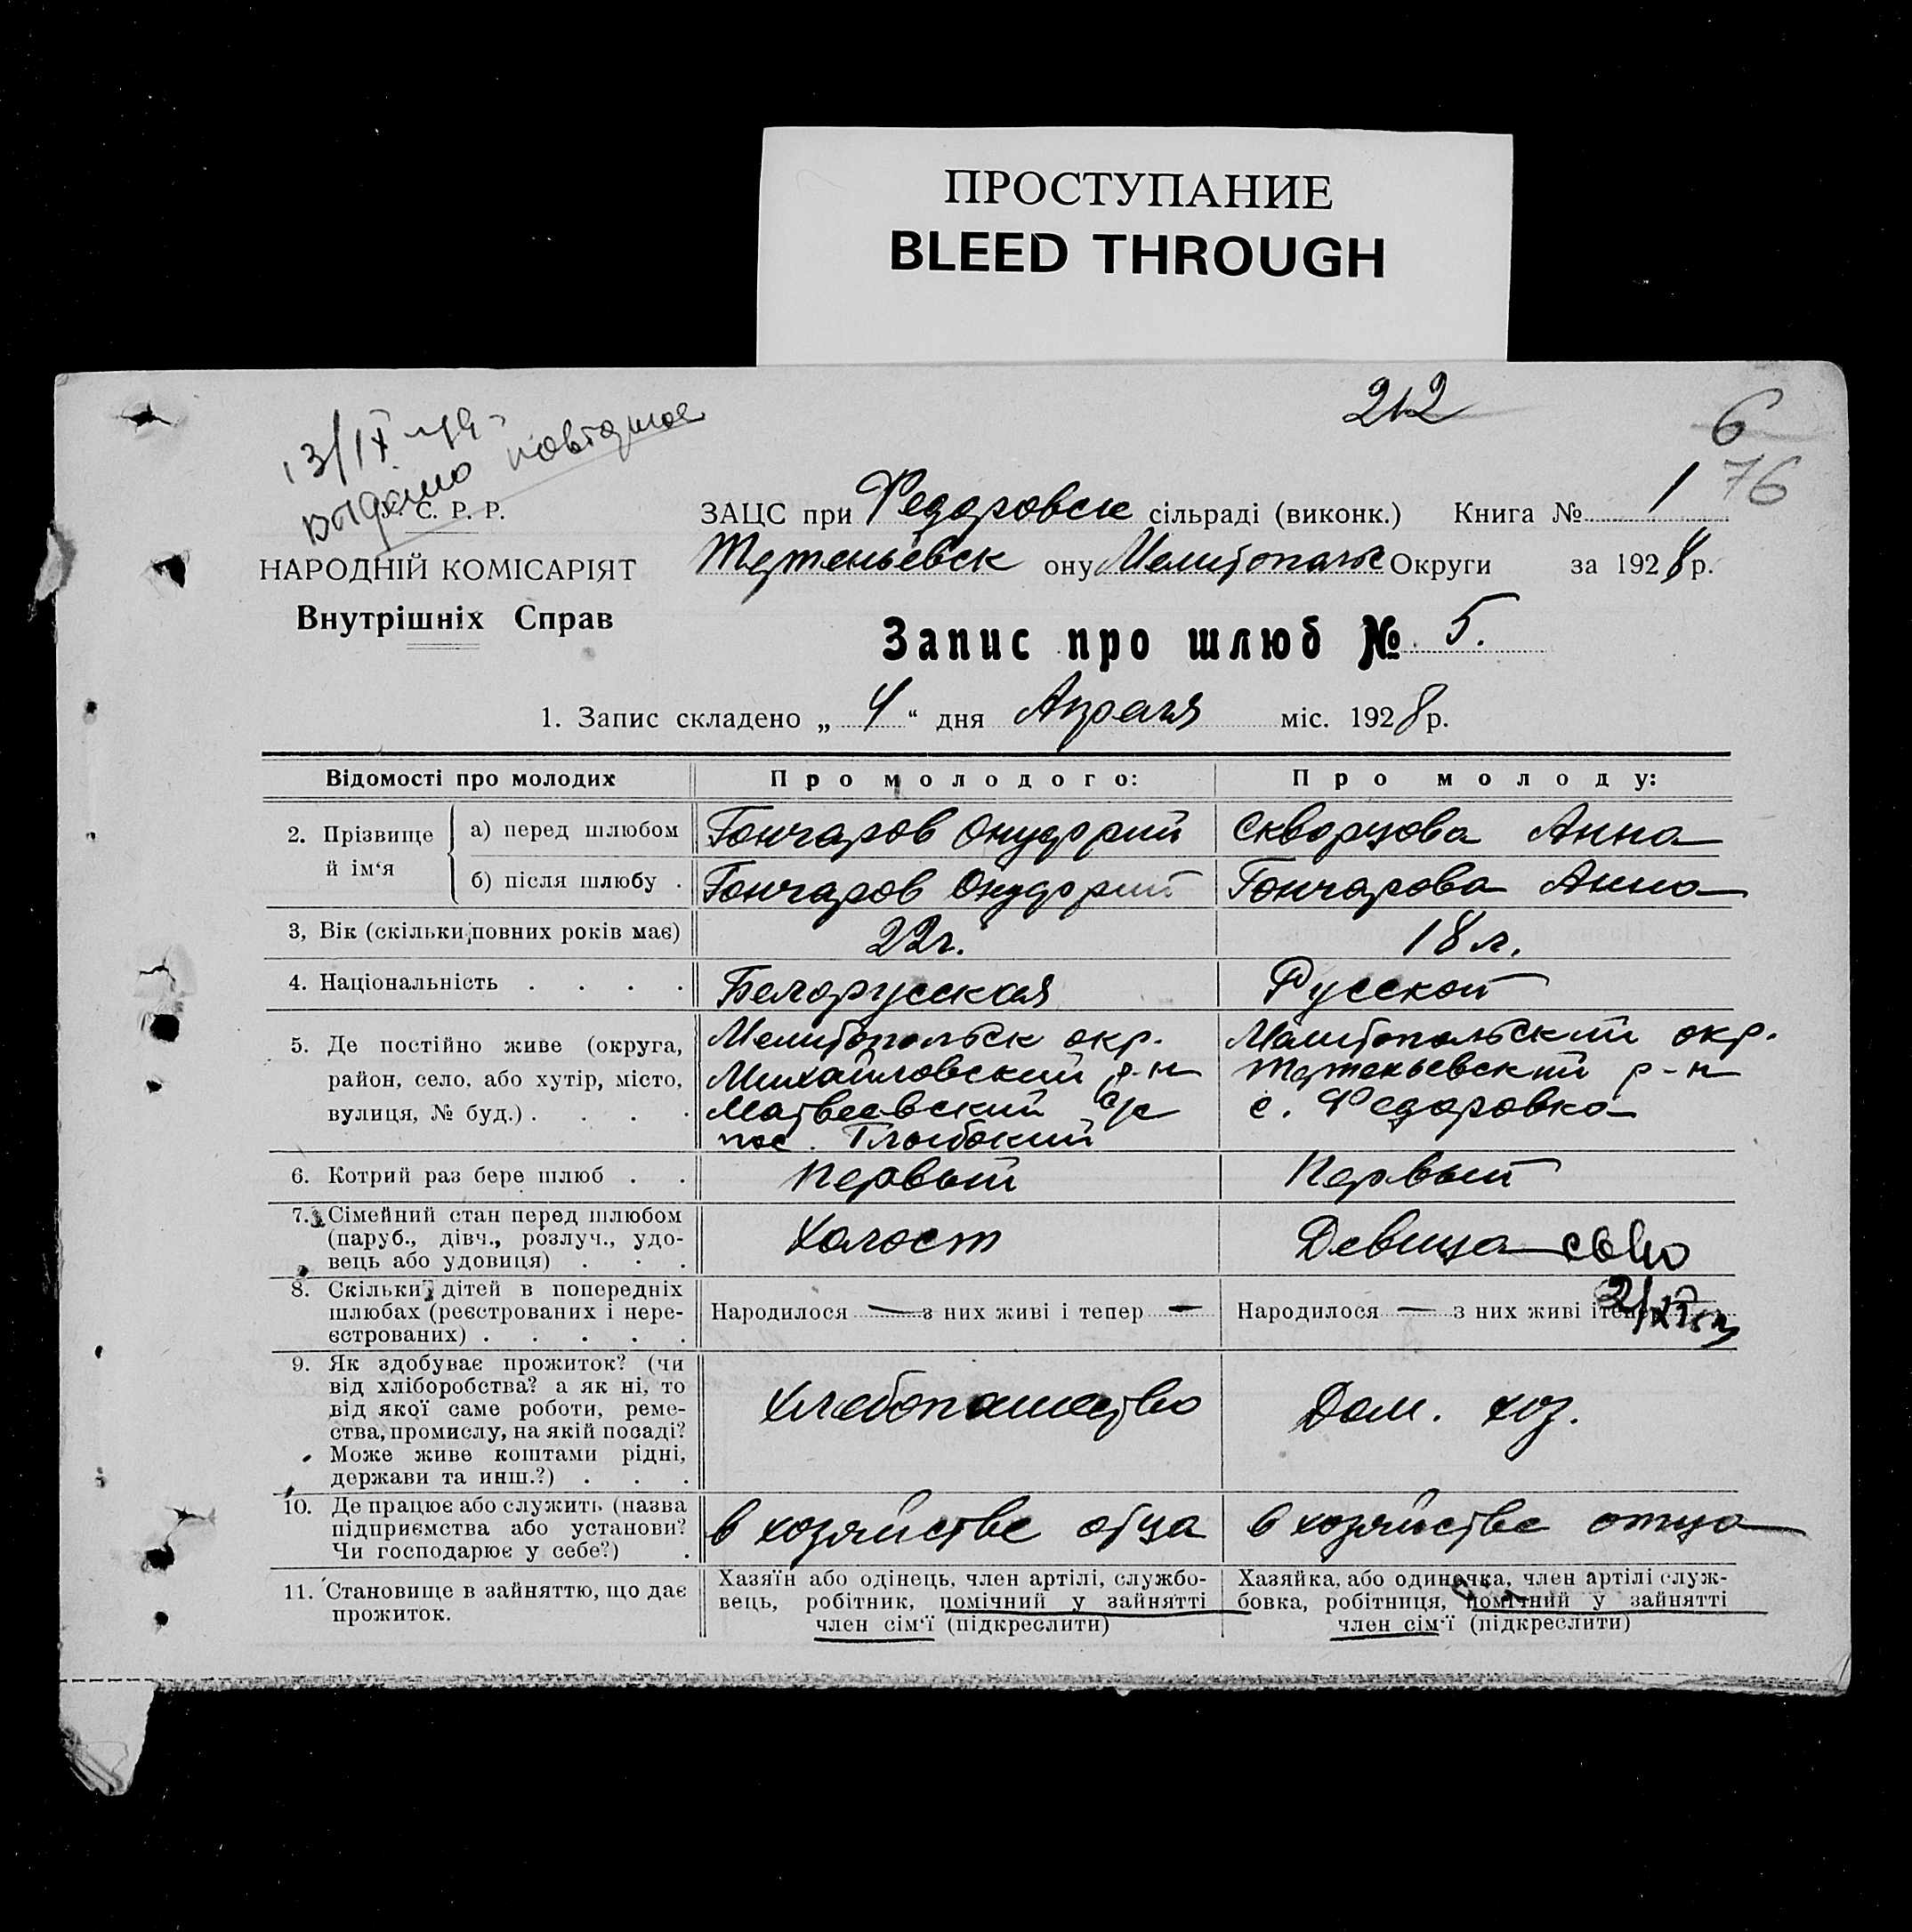 ПРОСТУПАНИЕ
BLEED THROUGH
212
6
76
13/IX
выдано
С. Р. Р.
НАРОДНІЙ КОМІСАРІЯТ
Внутрішніх Справ
ЗАЦС при Федоровск сільраді (виконк.) Книга № 1
ону Округи за 1928 р.
Запис про шлюб № 5.
1. Запис складено „ 4 “ дня Апреля міс. 1928 р.
Відомості про молодих Про молодого: Про молоду:
2. Прізвище й ім‘я
а) перед шлюбом Гончаров Онуфрий Скворцова Анна
б) після шлюбу . Гончаров Онуфрий Гончарова Анна
3, Вік (скільки повних років має) 22 г. 18 л.
4. Національність . . . . Белорусская Русской
5. Де постійно живе (округа, район, село, або хутір, місто, вулиця, № буд.) . . . .
Мелитопольск окр.
Михайловский р-н
Матвеевский с/с
пос. Глыбокий
Мелитопольский окр.
р-н
с. Федоровка
6. Котрий раз бере шлюб . . Первый Первый
7. Сімейний стан перед шлюбом
(паруб., дівч., розлуч., удо-
вець або удовиця) . . . Холост Девица
8. Скільки дітей в попередніх
шлюбах (реєстрованих і нере-
єстрованих) . . . . .
Народилося — з них живі і тепер —
Народилося — з них живі і тепер
9. Як здобуває прожиток? (чи
від хліборобства? а як ні, то
від якої саме роботи, реме-
ства, промислу, на якій посаді?
Може живе коштами рідні,
держави та инш.?) . . .
Хлебопашество
Дом. хоз.
10. Де працює або служить (назва
підприємства або установи?
Чи господарює у себе?) .
в хозяйстве отца
в хозяйстве отца
11. Становище в зайняттю, що дає
прожиток.
Хазяїн або одінець, член артілі, службо-
вець, робітник, помічний у зайнятті
член сім‘ї (підкреслити)
Хазяйка, або одиначка, член артілі служ-
бовка, робітниця, помічний у зайнятті
член сім‘ї (підкреслити)